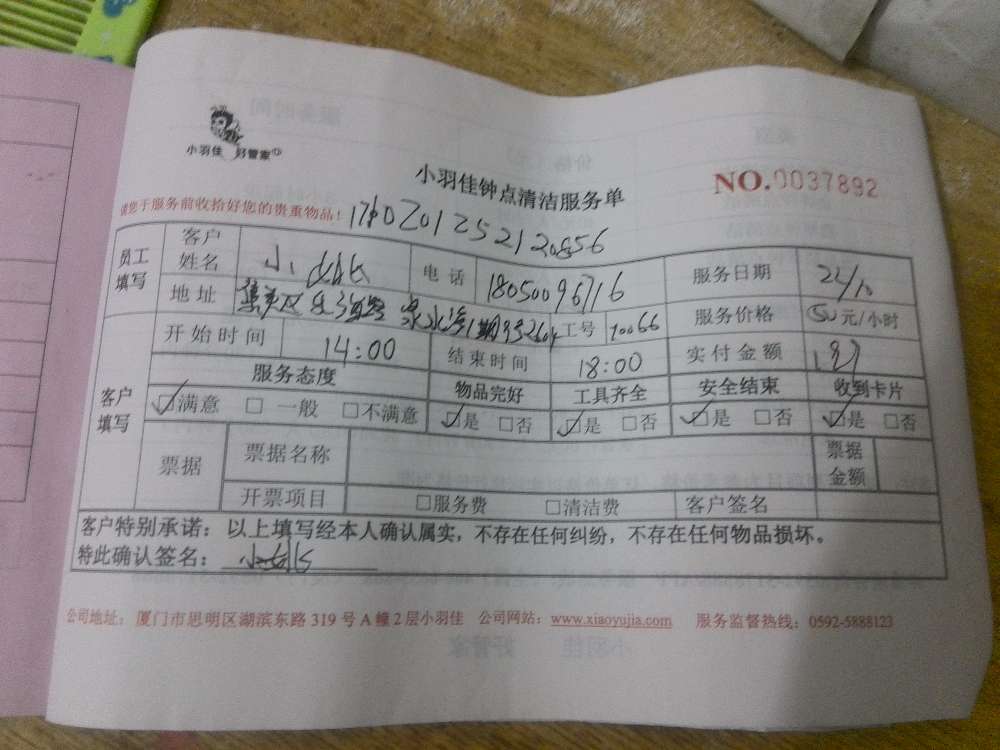 小羽佳 好管家
小羽佳钟点清洁服务单
NO.0037892
请您于服务前收拾好您的贵重物品!
员工填写 客户姓名 小 电话 18050096716 服务日期
地址 集美区 工号 70066 服务价格 50元/小时
客户填写 开始时间 14:00 结束时间 18:00 实付金额
服务态度 物品完好 工具齐全 安全结束 收到卡片
☑满意 □一般 □不满意 ☑是 □否 ☑是 □否 ☑是 □否 ☑是 □否
票据 票据名称 票据金额
开票项目 □服务费 □清洁费 客户签名
客户特别承诺:以上填写经本人确认属实,不存在任何纠纷,不存在任何物品损坏。
特此确认签名:
公司地址:厦门市思明区湖滨东路319号A幢2层小羽佳 公司网站:www.xiaoyujia.com 服务监督热线:0592-5888123